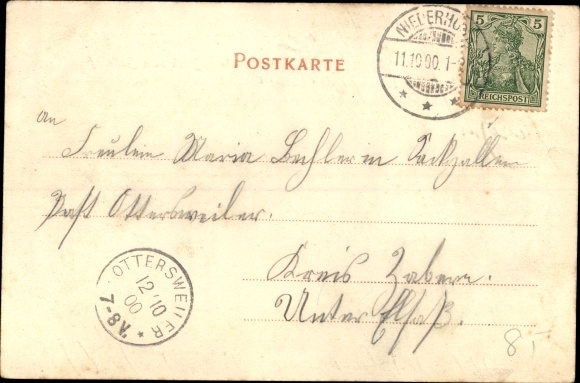 NIEDERHO
11.10.00. 1-
5 5
REICHSPOST
POSTKARTE
An
Freulein Maria Bechler in Sackzallen
Post Ottersweiler.
Kreis Zabern.
Unter Elsaß.
OTTERSWEILER
12/10
00
7-8V.
8,-